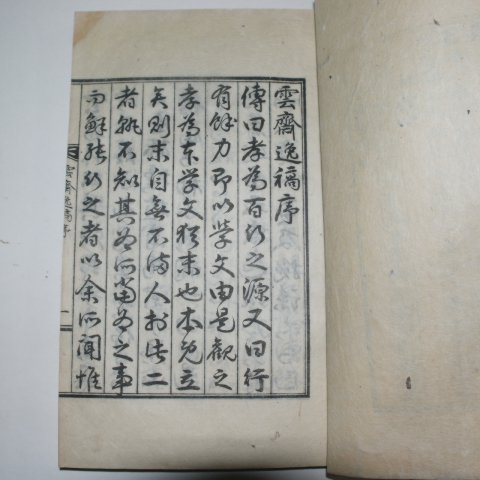 雲齋逸稿序
傳曰孝為百行之源又曰行
有餘力即以学文由是觀之
孝為本学文猶末也本既立
矣則末自無不備人於此二
者孰不知其為所當為之事
而鮮能行之者以余所聞惟
雲齋逸稿序
一